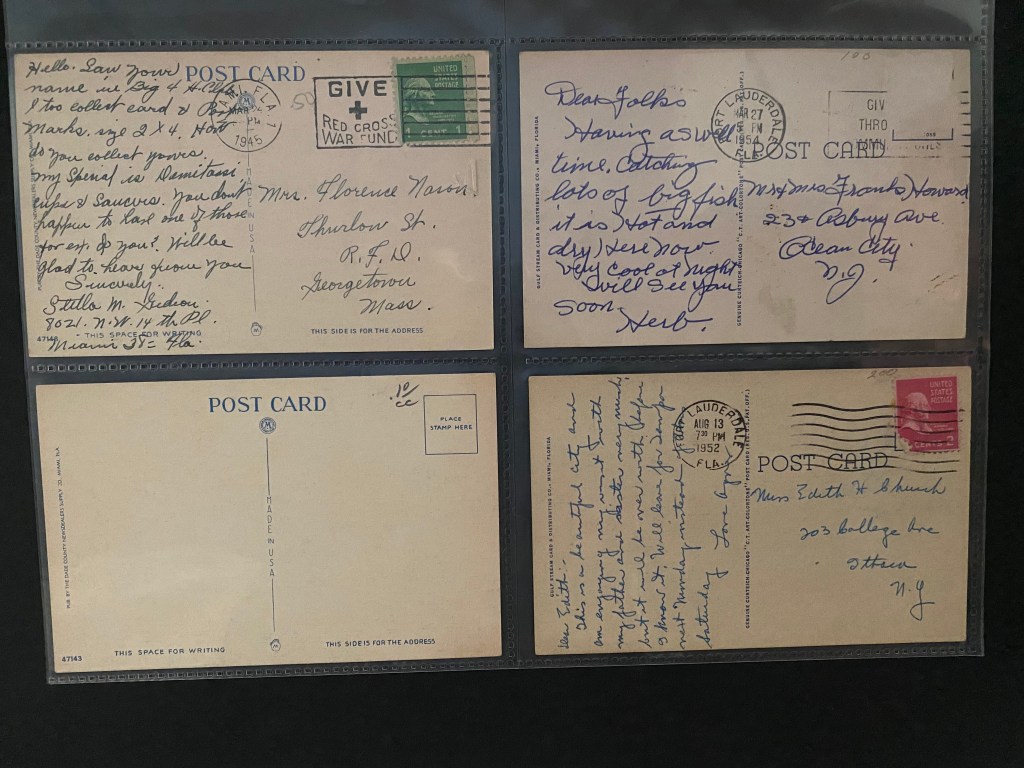 Hello. Saw your
name in Big 4 H.
I too collect card & P.
Marks. size 2 X 4. How
do you collect yours
my Special is Demitassi
cups & Saucers. You dont
happen to have one of those
for ex. do you? Will be
glad to hear from you
Sincerely.
Stella M. Gideon.
8021. N.W. 14 th Pl.
Miami 38 = Fla.
POST CARD
MIAMI, FLA.
MAR
PM
1945
GIVE
+
RED CROSS
WAR FUND
UNITED
STATES
POSTAGE
1 CENT 1
MADE IN USA
Mrs. Florence Nason
Thurlow St.
R.F.D.
Georgetown
Mass.
THIS SPACE FOR WRITING
THIS SIDE IS FOR THE ADDRESS
Dear Folks
Having a swell
time. Catching
lots of big fish
it is Hot and
dry here now
very cool at night
will see you
soon.
Herb.
GULF STREAM CARD & DISTRIBUTING CO., MIAMI, FLORIDA
GENUINE CURTEICH-CHICAGO "C.T. ART-COLORTONE" POST CARD (REG. U.S. PAT. OFF.)
100
FORT LAUDERDALE
MAR 27
PM
1954
FLA.
GIV
THRO
POST CARD
Mr & Mrs Frank Howard
234 Asbury Ave.
Ocean City.
N.J.
POST CARD
.10/cc
PLACE
STAMP HERE
PUB. BY THE DADE COUNTY NEWSDEALERS SUPPLY CO., MIAMI, FLA.
MADE IN USA
47143
THIS SPACE FOR WRITING
THIS SIDE IS FOR THE ADDRESS
Dear Edith:-
This is a beautiful city and
am enjoying my visit with
my father and sister very much,
but it will be over with before
I know it. Will leave for Denver
next Monday instead of
Saturday Love
GULF STREAM CARD & DISTRIBUTING CO., MIAMI, FLORIDA
GENUINE CURTEICH-CHICAGO "C.T. ART-COLORTONE" POST CARD (REG. U.S. PAT. OFF.)
200
LAUDERDALE
AUG 13
7 30 PM
1952
FLA.
UNITED
STATES
POSTAGE
CENTS 2
POST CARD
Miss Edith H Church
203 College Ave
Ithaca
N.Y